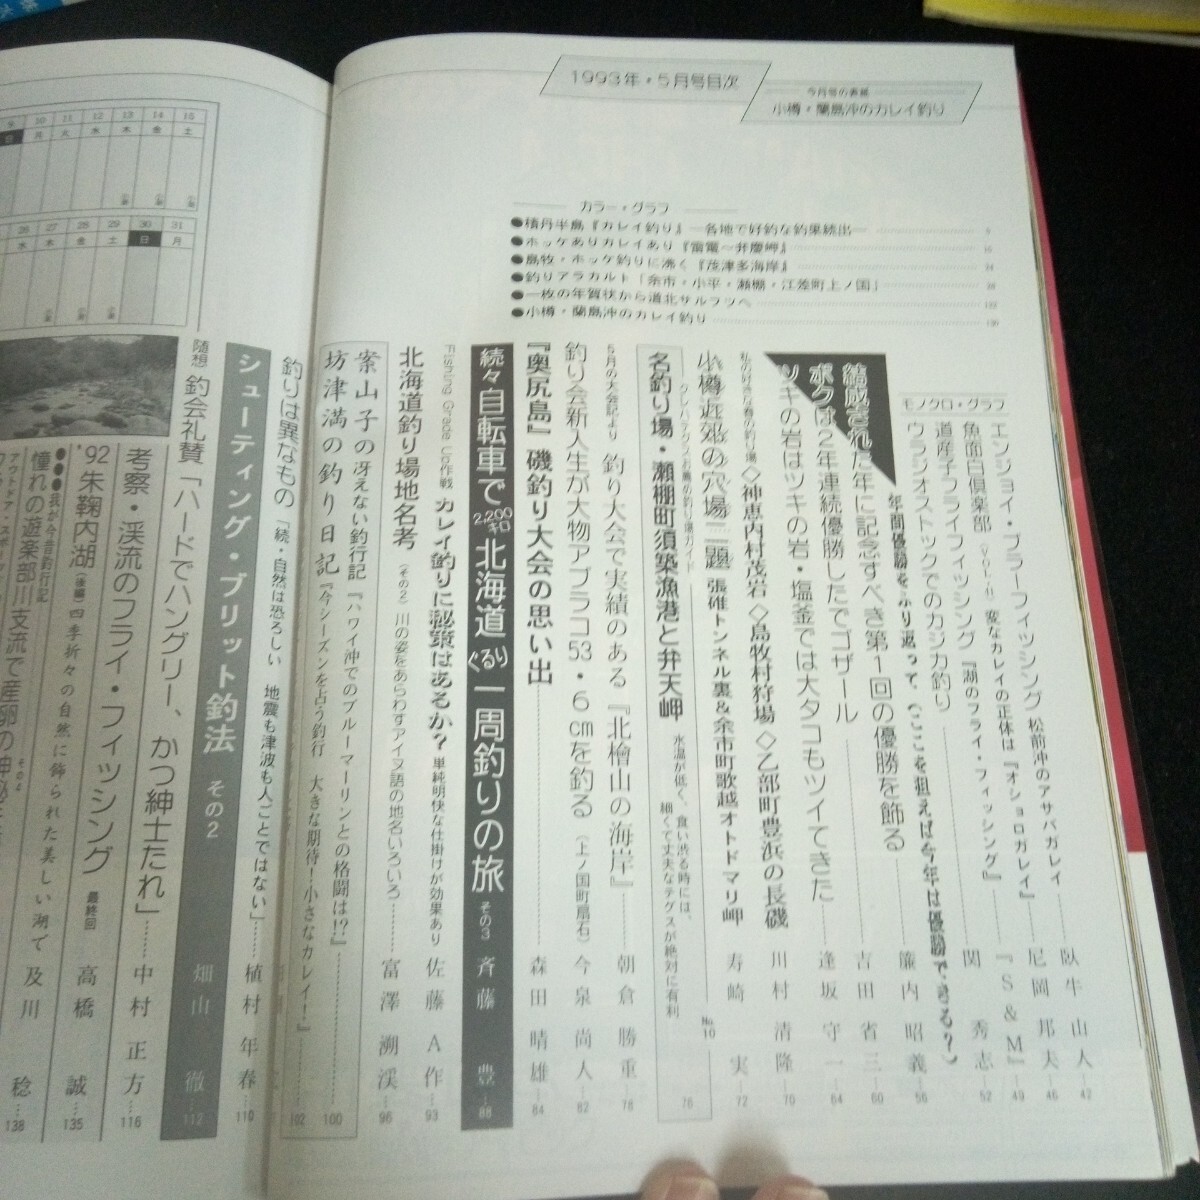 1993年・5月号目次
今月号の表紙
小樽・蘭島沖のカレイ釣り
カラー・グラフ
●積丹半島『カレイ釣り』―各地で好釣な釣果続出―
●ホッケありカレイあり『雷電〜弁慶岬』
●島牧・ホッケ釣りに沸く『茂津多海岸』
●釣りアラカルト「余市・小平・瀬棚・江差町上ノ国」
●一枚の年賀状から道北サルフツへ
●小樽・蘭島沖のカレイ釣り
モノクロ・グラフ
エンジョイ・ブラーフィッシング 松前沖のアサバガレイ 臥牛山人 42
魚面白倶楽部 変なカレイの正体は『オショロガレイ』 尼岡邦夫 46
道産子フライフィッシング『湖のフライ・フィッシング』 『S&M』 49
ウラジオストックでのカジカ釣り 関秀志 52
年間優勝をふり返って、(ここを狙えば今年は優勝できる?)
結成された年に記念すべき第1回の優勝を飾る 簾内昭義 56
ボクは2年連続優勝したでゴザール 吉田省三 60
ツキの岩はツキの岩・塩釜では大タコもツイてきた 逢坂守一 64
私の好きな春の釣り場 ◇神恵内村茂岩◇島牧村狩場◇乙部町豊浜の長磯 川村清隆 70
小樽近郊の穴場二題 張碓トンネル裏&余市町歌越オトドマリ岬 寿崎実 72
クレハテグスお薦め釣り場ガイド No.10
名釣り場・瀬棚町須築漁港と弁天岬 水温が低く、食い渋る時には、細くて丈夫なテグスが絶対に有利 76
5月の大会記より 釣り大会で実績のある『北檜山の海岸』 朝倉勝重 78
釣り会新人生が大物アブラコ53・6cmを釣る(上ノ国町扇石) 今泉尚人 82
『奥尻島』磯釣り大会の思い出 森田晴雄 84
続々自転車で2,200キロ北海道ぐるり一周釣りの旅 その3 斉藤豊 88
Fishing Grade Up作戦 カレイ釣りに秘策はあるか? 単純明快な仕掛けが効果あり 佐藤A作 93
北海道釣り場地名考(その2)川の姿をあらわすアイヌ語の地名いろいろ 富澤溯渓 96
案山子の冴えない釣行記『ハワイ沖でのブルーマーリンとの格闘は!?』 100
坊津満の釣り日記『今シーズンを占う釣行 大きな期待!小さなカレイ!』 102
釣りは異なもの「続・自然は恐ろしい 地震も津波も人ごとではない」 植村年春 110
シューティング・ブリット釣法 その2 畑山徹 112
随想 釣会礼賛「ハードでハングリー、かつ紳士たれ」 中村正方 116
考察・渓流のフライ・フィッシング 最終回 高橋誠 135
'92朱鞠内湖(後編)四季折々の自然に飾られた美しい湖で 及川稔 138
●●●我が今昔釣行記 その4
憧れの遊楽部川支流で産卵の神秘
9 10 11 12 13 14 15
日 月 火 水 木 金 土
26 27 28 29 30 31
水 木 金 土 日 月